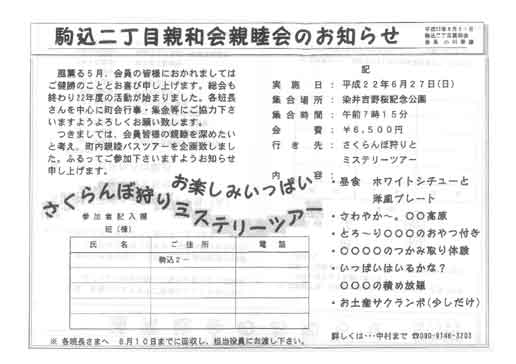 駒込二丁目親和会親睦会のお知らせ
駒込二丁目親和会
風薫る5月、会員の皆様におかれましては
ご健勝のこととお喜び申し上げます。総会も
終わり22年度の活動が始まりました。各班長
さんを中心に町会行事・集金等にご協力下さ
いますようよろしくお願い致します。
つきましては、会員皆様の親睦を深めたい
と考え、町内親睦バスツアーを企画致しまし
た。ふるってご参加下さいますようお知らせ
申し上げます。
記
実施日:平成22年6月27日(日)
集合場所:染井吉野桜記念公園
集合時間:午前7時15分
会費:¥6,500円
行き先:さくらんぼ狩りと
ミステリーツアー
内容:
・昼食 ホワイトシチューと
洋風プレート
・さわやか～。〇〇高原
・とろ～り〇〇〇のおやつ付き
・〇〇〇〇のつかみ取り体験
・いっぱいはいるかな?
〇〇～の積め放題
・お土産サクランボ(少しだけ)
お楽しみいっぱい
さくらんぼ狩りミステリーツアー
参加者記入欄
班(棟)
氏名 ご住所 電話
駒込2－
※ 各班長さまへ 6月10日までに回収し、担当役員にお渡し下さい。
詳しくは・・・中村まで ☎090-9748-3203